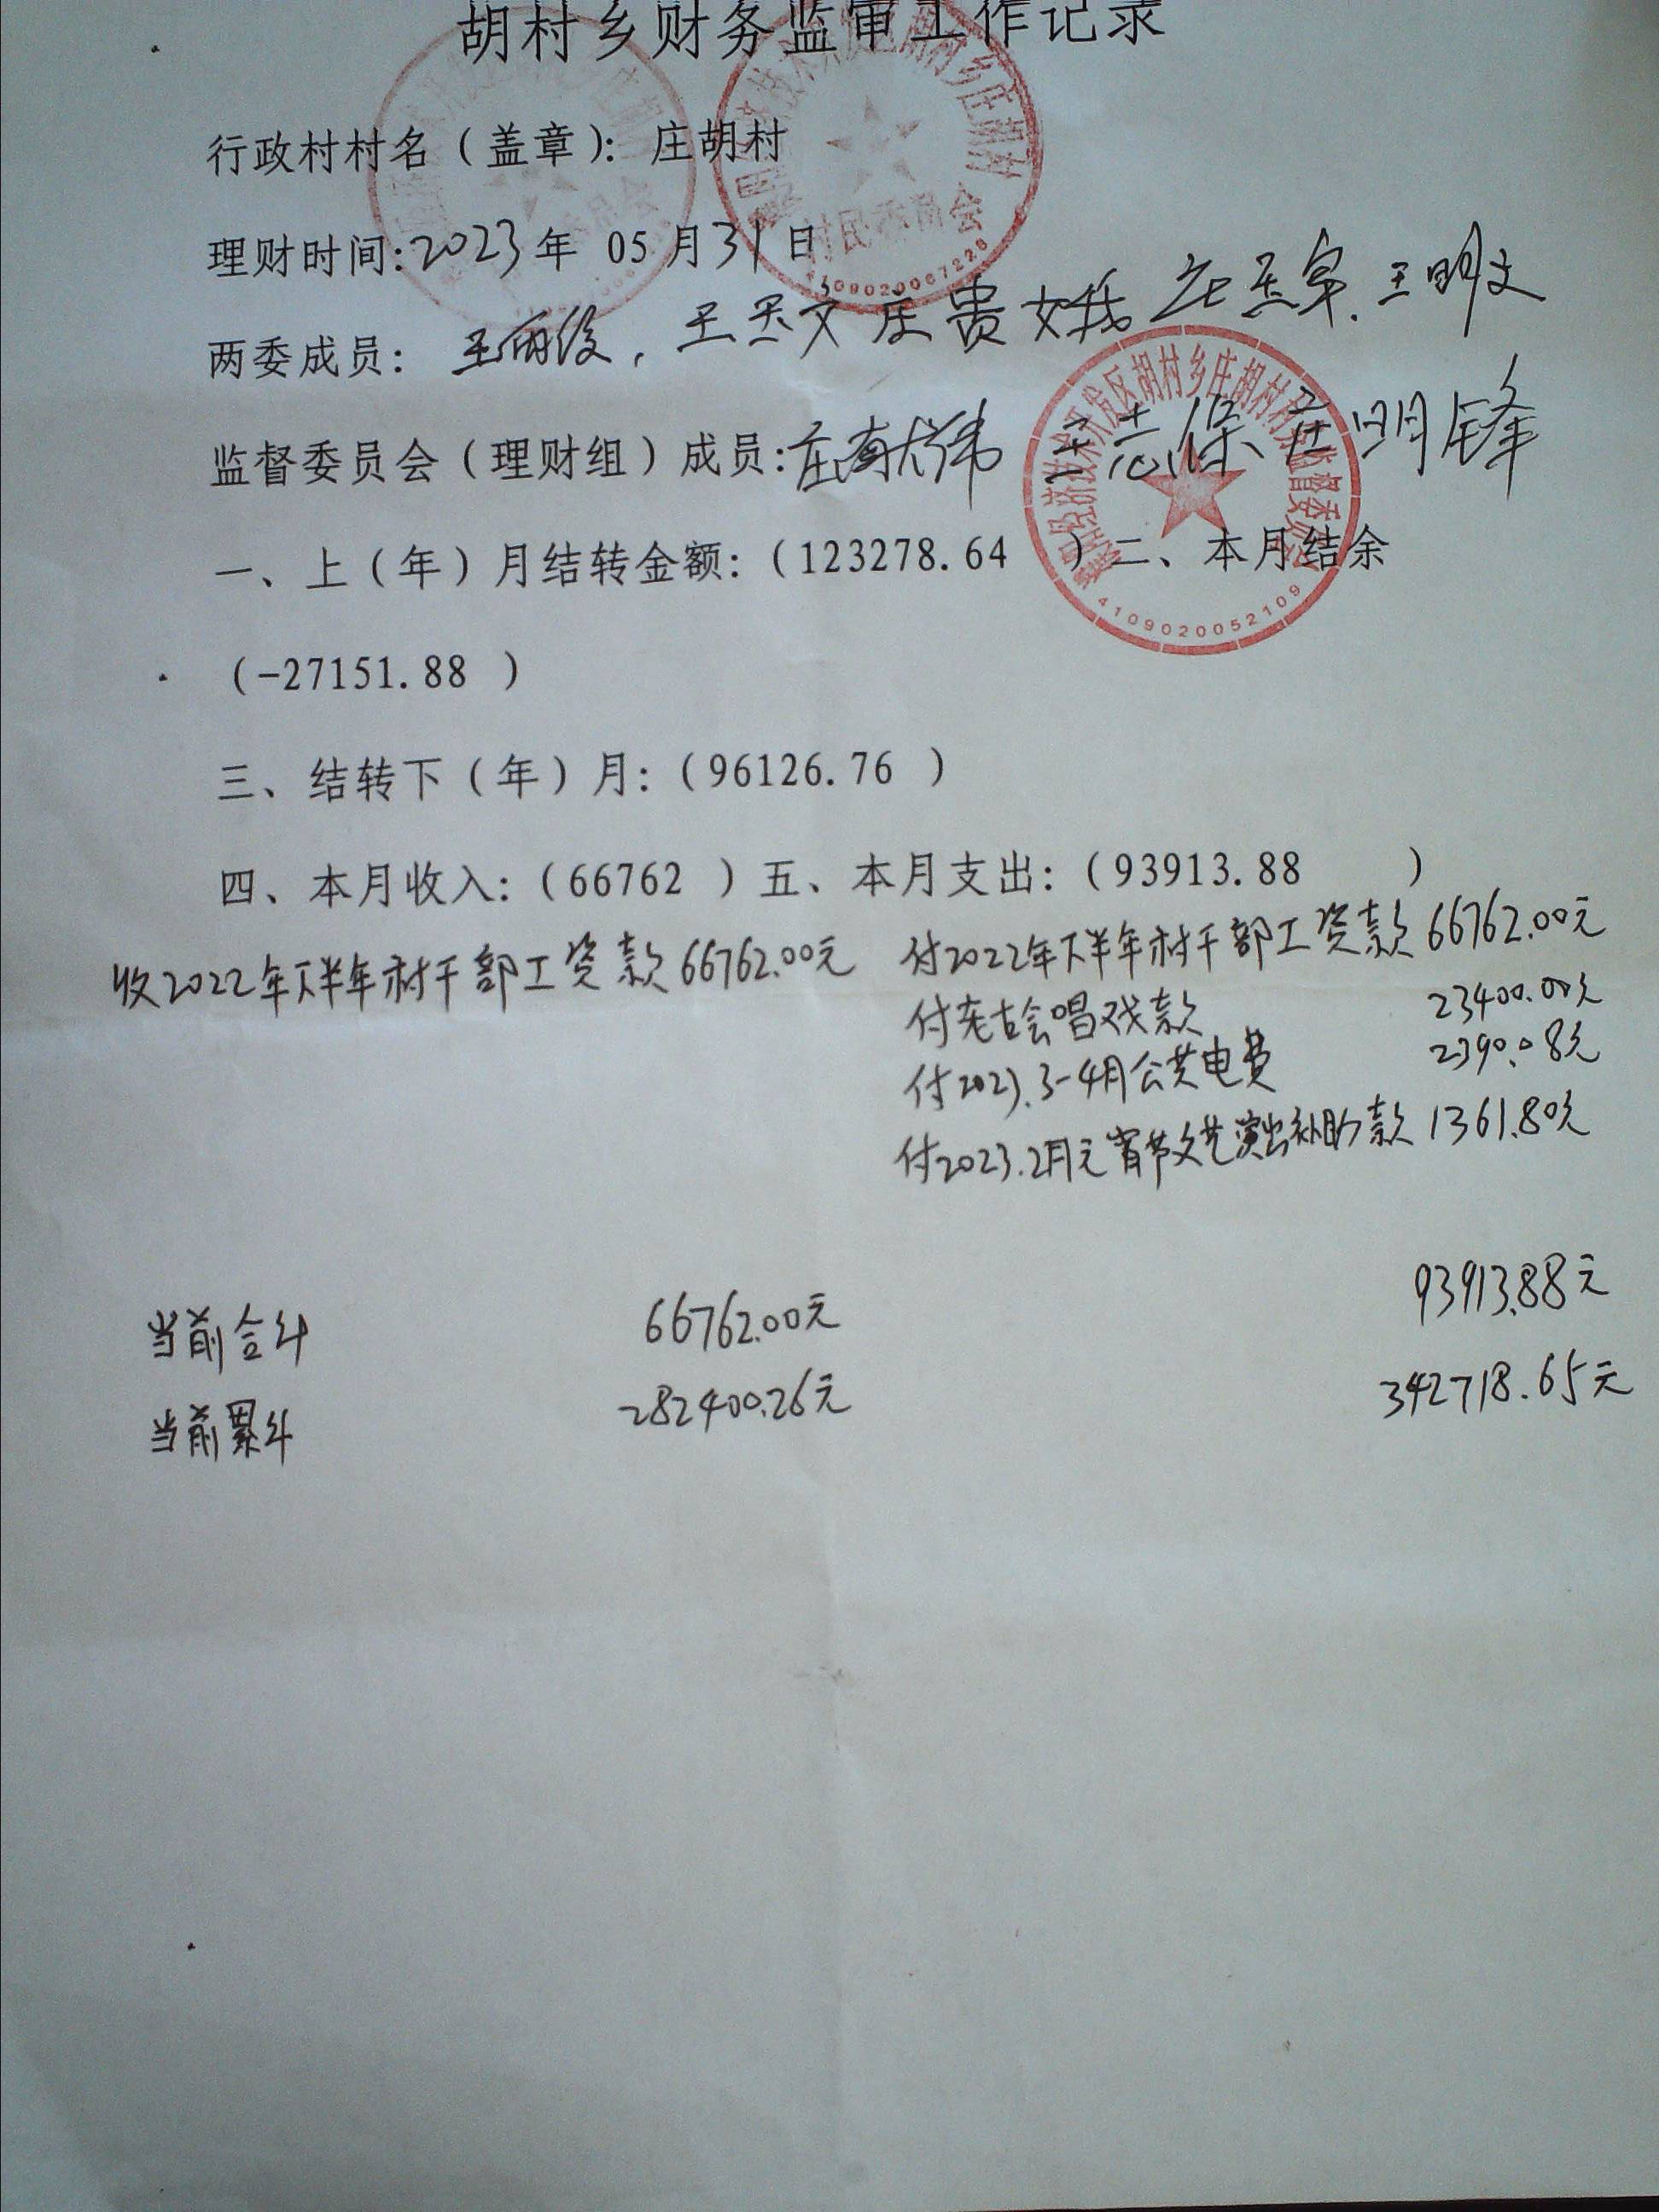 胡村乡财务监审工作记录
行政村村名（盖章）：庄胡村
村民委员会
4109020067226
理财时间：2023年 05月31日
两委成员：王丽俊，王丕文 庄贵娥 王明文
监督委员会（理财组）成员：庄献伟 庄志保 庄明锋
开发区胡村乡庄胡村村务监督委员会
4109020052109
一、上（年）月结转金额：（123278.64 ）二、本月结余
（-27151.88 ）
三、结转下（年）月：（96126.76 ）
四、本月收入：（66762 ）五、本月支出：（93913.88 ）
收2022年下半年村干部工资款66762.00元 付2022年下半年村干部工资款66762.00元
付老古会唱戏款 23400.00元
付2023.3-4月公共电费 2390.08元
付2023.2月元宵节文艺演出补助款 1361.80元
当前合计 66762.00元 93913.88元
当前累计 282400.26元 342718.65元